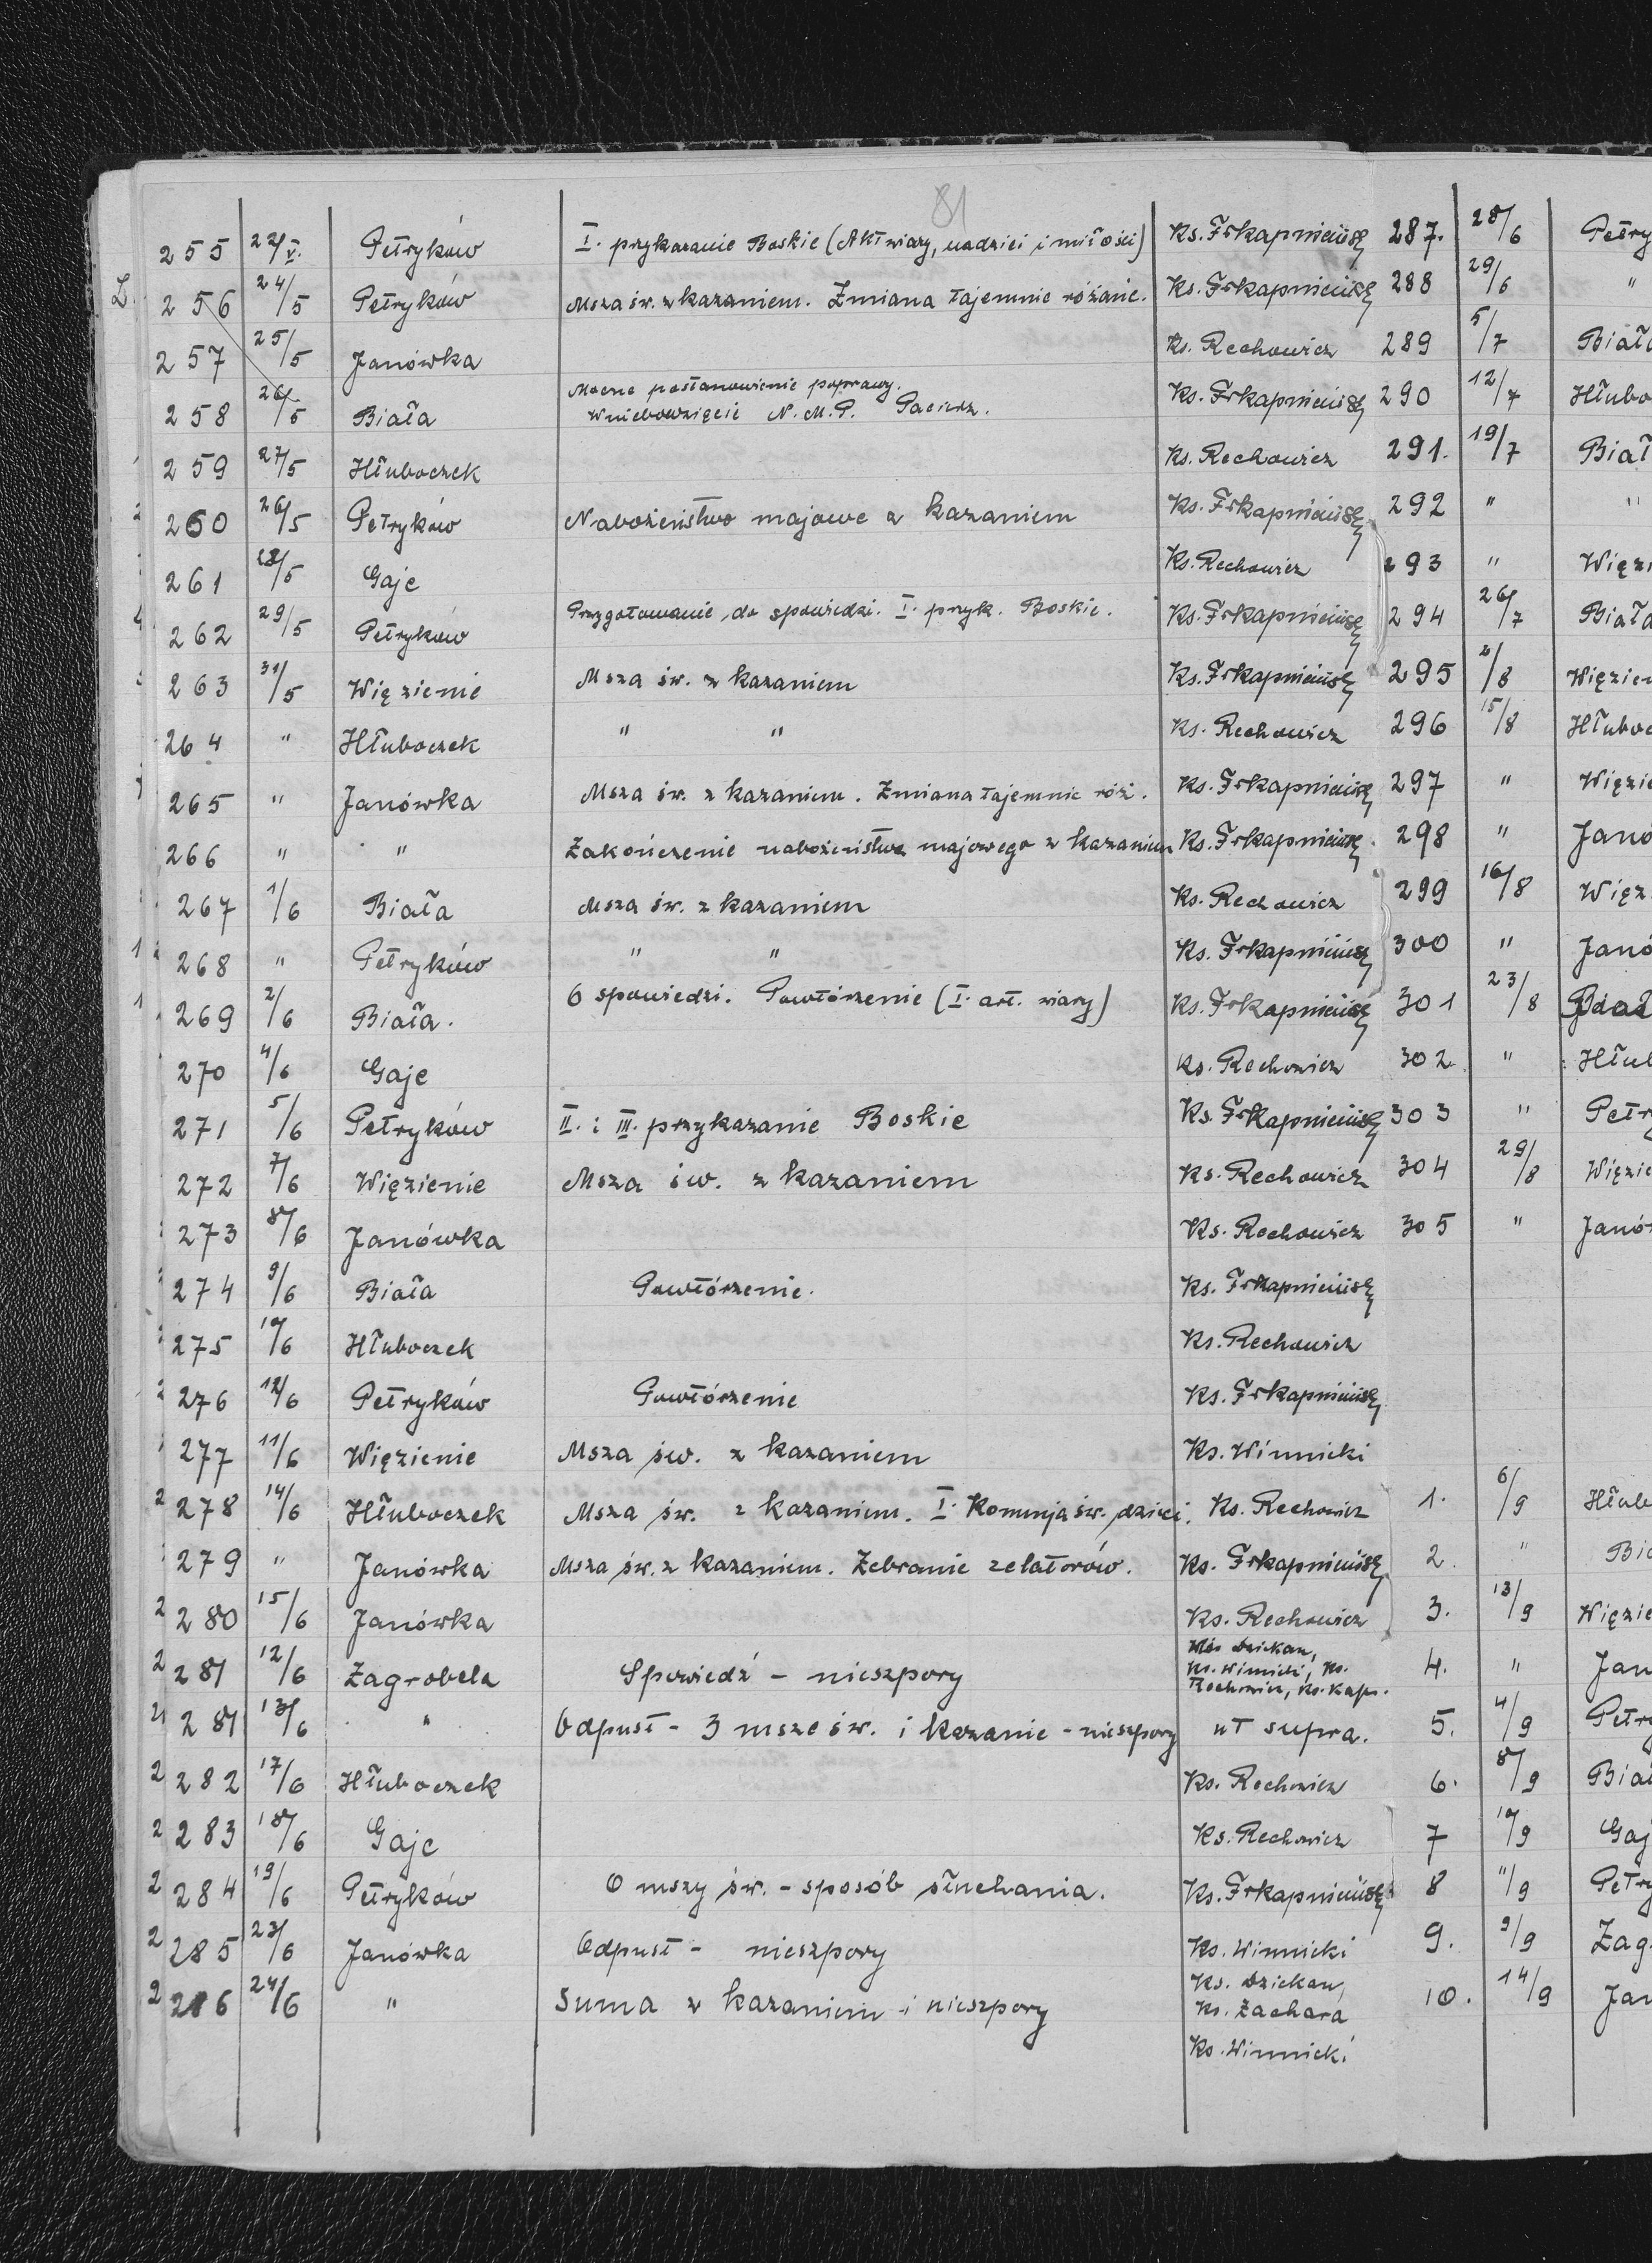 81
255 22/V. Petryków I. przykazanie Boskie (Akt wiary, nadziei i miłości) Ks. Fr Kapniciusz
L. 256 24/5 Petryków Msza św. z kazaniem. Zmiana tajemnic różańc. Ks. Fr Kapniciusz
257 25/5 Janówka Ks. Rechowicz
258 26/5 Biała Mocne postanowienie poprawy.
Wniebowzięcie N.M.P. Pacierz. Ks. Fr Kapniciusz
259 27/5 Hłuboczek Ks. Rechowicz
260 26/5 Petryków Nabożeństwo majowe z kazaniem Ks. Fr Kapniciusz
261 28/5 Gaje Ks. Rechowicz
262 29/5 Petryków Przygotowanie do spowiedzi. I. przyk. Boskie. Ks. Fr Kapniciusz
263 31/5 Więzienie Msza św. z kazaniem Ks. Fr Kapniciusz
264 " Hłuboczek " " Ks. Rechowicz
265 " Janówka Msza św. z kazaniem. Zmiana tajemnic róż. Ks. Fr Kapniciusz
266 " " Zakończenie nabożeństwa majowego z kazaniem Ks. Fr Kapniciusz.
267 1/6 Biała Msza św. z kazaniem Ks. Rechowicz
268 " Petryków " " Ks. Fr Kapniciusz
269 2/6 Biała. O spowiedzi. Powtórzenie (I. art. wiary) Ks. Fr Kapniciusz
270 4/6 Gaje Ks. Rechowicz
271 5/6 Petryków II. i III. przykazanie Boskie Ks. Fr Kapniciusz
272 7/6 Więzienie Msza św. z kazaniem Ks. Rechowicz
273 8/6 Janówka Ks. Rechowicz
274 9/6 Biała Powtórzenie. Ks. Fr Kapniciusz
275 10/6 Hłuboczek Ks. Rechowicz
276 12/6 Petryków Powtórzenie Ks. Fr Kapniciusz
277 11/6 Więzienie Msza św. z kazaniem Ks. Winnicki
278 14/6 Hłuboczek Msza św. z kazaniem. I. Komunja św. dzieci. Ks. Rechowicz
279 " Janówka Msza św. z kazaniem. Zebranie zelatorów. Ks. Fr Kapniciusz
280 15/6 Janówka Ks. Rechowicz
281 12/6 Zagrobela Spowiedź - nieszpory Ks. Dziekan,
Ks. Winnicki, Ks.
Rechowicz, Ks. Kapn.
281 13/6 " Odpust - 3 msze św. i kazanie - nieszpory ut supra.
282 17/6 Hłuboczek Ks. Rechowicz
283 18/6 Gaje Ks. Rechowicz
284 19/6 Petryków O mszy św. - sposób słuchania. Ks. Fr Kapniciusz
285 23/6 Janówka Odpust - nieszpory Ks. Winnicki
286 24/6 " Suma z kazaniem i nieszpory Ks. Dziekan,
Ks. Zachara
Ks. Winnicki
287. 28/6 Petry
288 29/6 "
289 5/7 Biała
290 12/7 Hłubo
291. 19/7 Biał
292 " "
293 " Więzi
294 26/7 Biała
295 2/8 Więzien
296 15/8 Hłuboc
297 " Więzie
298 " Janó
299 16/8 Więz
300 " Janó
301 23/8 Biał
302 " Hłub
303 " Petr
304 29/8 Więzie
305 " Janów
1. 6/9 Hłub
2. " Bia
3. 13/9 Więzie
4. " Jan
5. 4/9 Petry
6. 8/9 Biał
7 10/9 Gaj
8 11/9 Petry
9. 9/9 Zag
10. 14/9 Jan